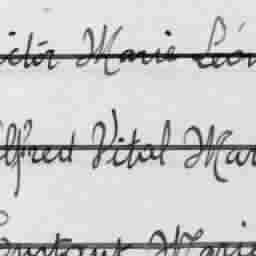 ictor Marie Léon
lfred Vital Mar
onstant Marie